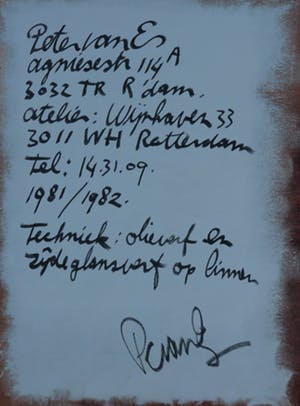 Peter van Es
agniesestr 114A
3032 TR R'dam.
atelier: Wijnhaven 33
3011 WH Rotterdam
tel: 14.31.09.
1981/1982.
Techniek: olieverf en
zijdeglansverf op linnen